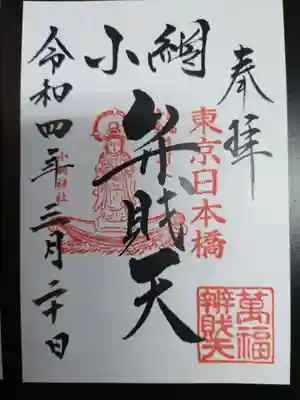 奉拝
東京日本橋
小網
弁財天
小網神社
令和四年三月二十日
萬福
辨財天